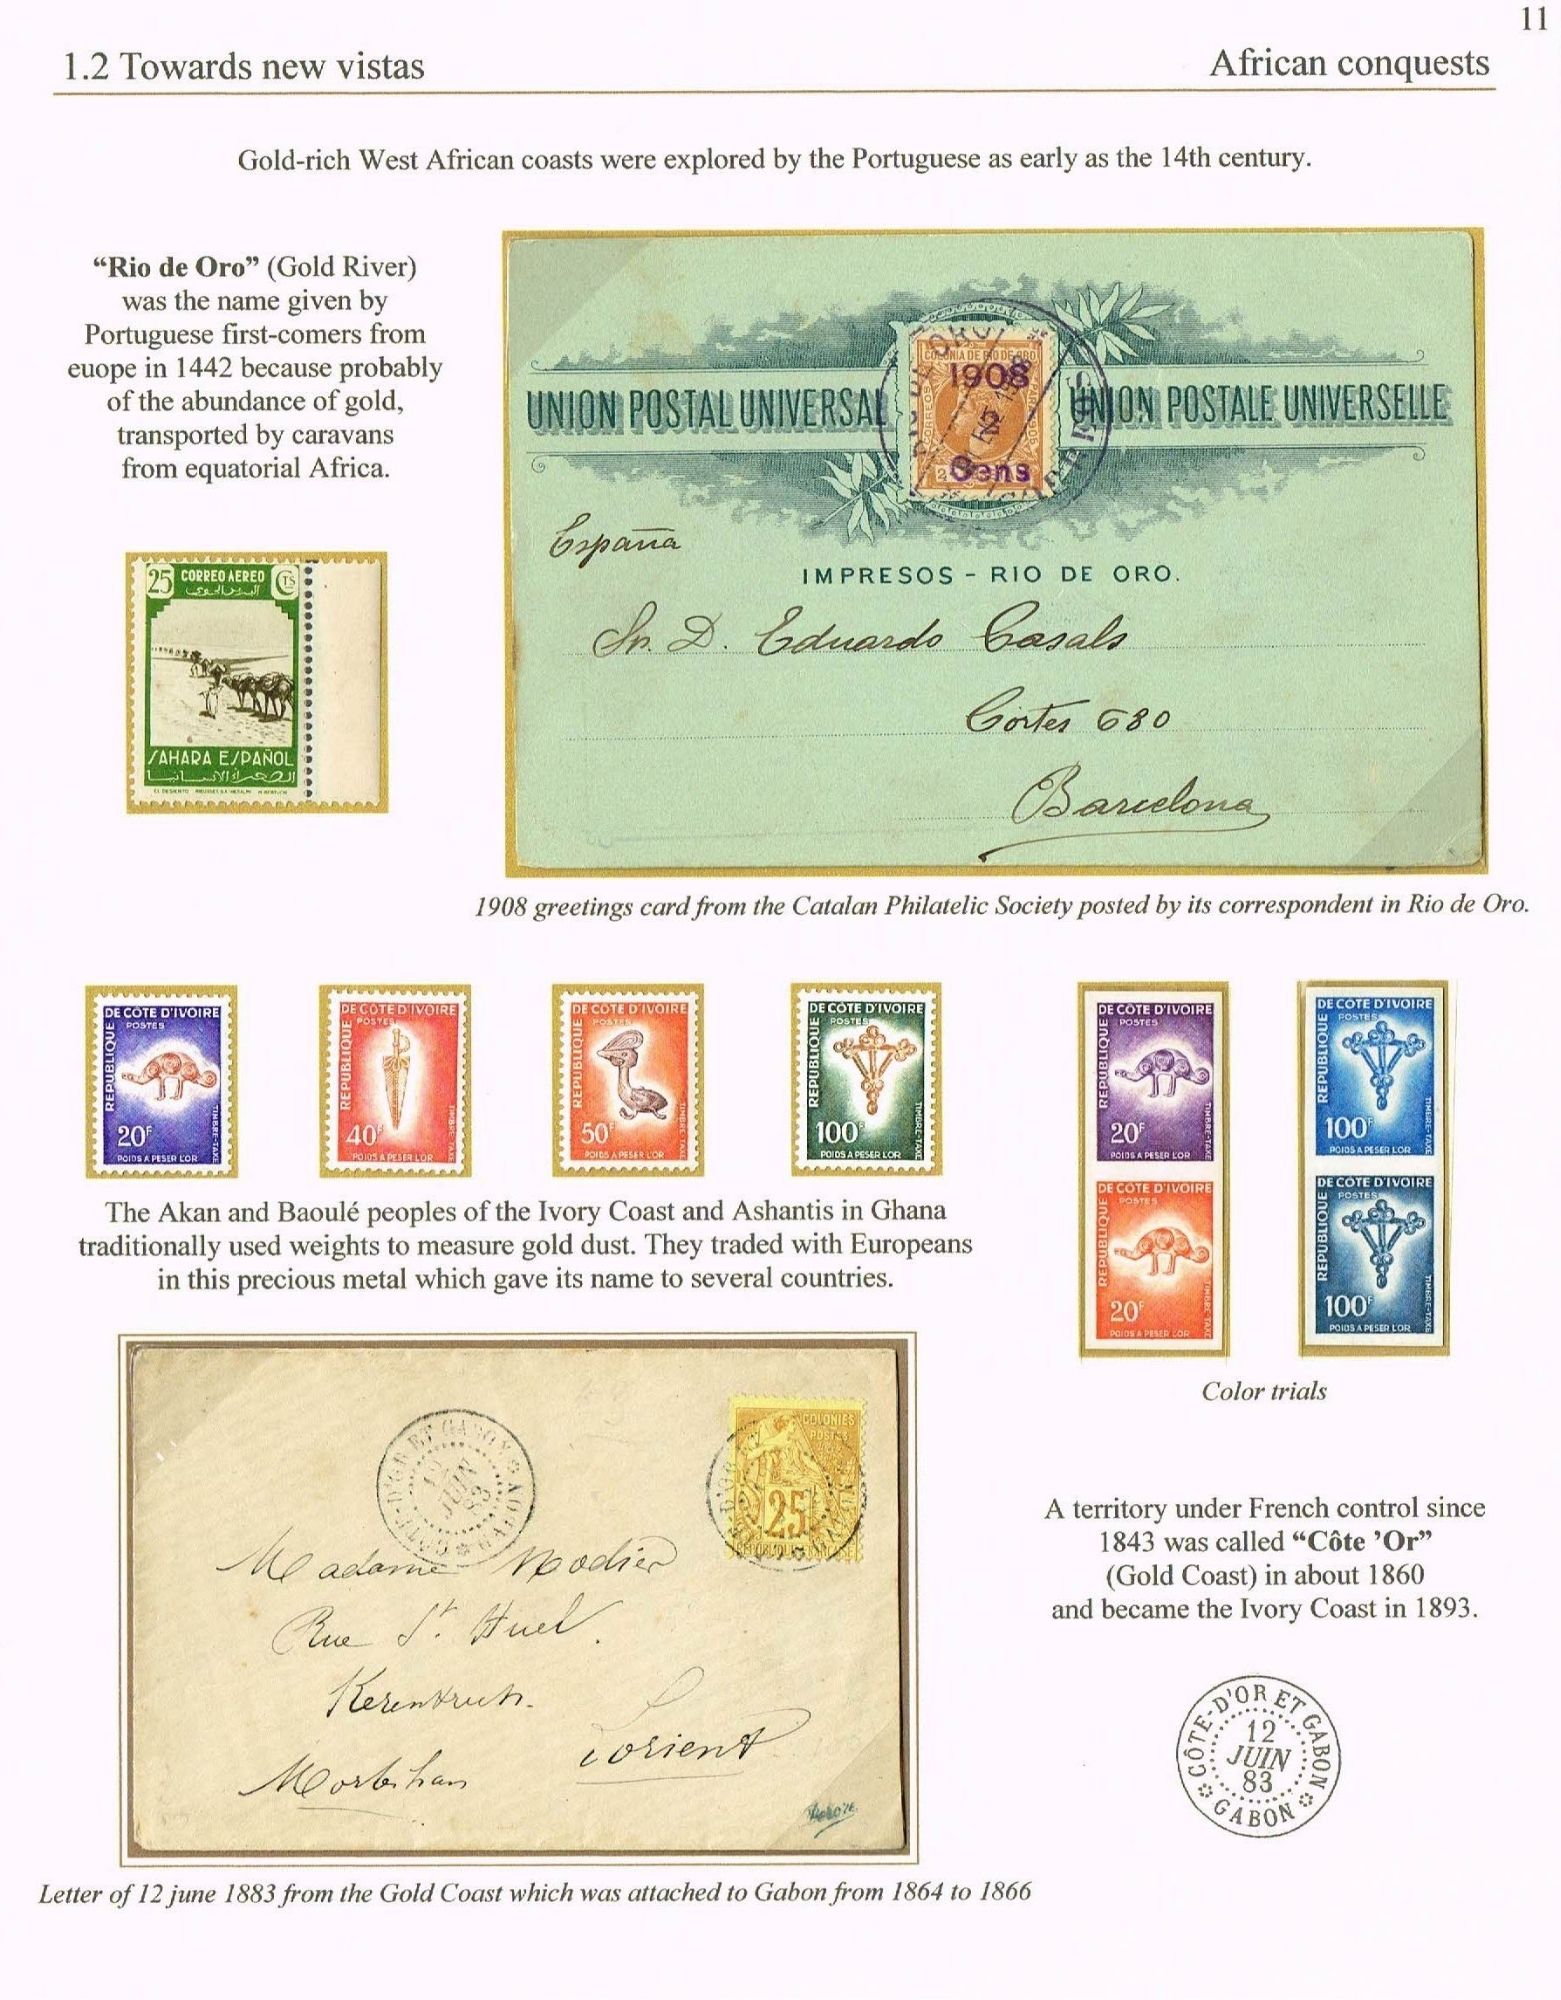 11
1.2 Towards new vistas
African conquests
Gold-rich West African coasts were explored by the Portuguese as early as the 14th century.
“Rio de Oro” (Gold River)
was the name given by
Portuguese first-comers from
euope in 1442 because probably
of the abundance of gold,
transported by caravans
from equatorial Africa.
UNION POSTAL UNIVERSAL
UNION POSTALE UNIVERSELLE
COLONIA DE RIO DE ORO
1908
2
Cens
CORREOS
España
IMPRESOS - RIO DE ORO.
Sr. D. Eduardo Casals
Cortes 680
Barcelona
25 CORREO AEREO CTS
البريد الجوي
SAHARA ESPAÑOL
1908 greetings card from the Catalan Philatelic Society posted by its correspondent in Rio de Oro.
REPUBLIQUE
DE CÔTE D'IVOIRE
POSTES
20F
TIMBRE-TAXE
POIDS A PESER L'OR
REPUBLIQUE
DE CÔTE D'IVOIRE
POSTES
40F
TIMBRE-TAXE
POIDS A PESER L'OR
REPUBLIQUE
DE CÔTE D'IVOIRE
POSTES
50F
TIMBRE-TAXE
POIDS A PESER L'OR
REPUBLIQUE
DE CÔTE D'IVOIRE
POSTES
100F
TIMBRE-TAXE
POIDS A PESER L'OR
REPUBLIQUE
DE CÔTE D'IVOIRE
POSTES
20F
TIMBRE-TAXE
POIDS A PESER L'OR
REPUBLIQUE
DE CÔTE D'IVOIRE
POSTES
20F
TIMBRE-TAXE
POIDS A PESER L'OR
REPUBLIQUE
DE CÔTE D'IVOIRE
POSTES
100F
TIMBRE-TAXE
POIDS A PESER L'OR
REPUBLIQUE
DE CÔTE D'IVOIRE
POSTES
100F
TIMBRE-TAXE
POIDS A PESER L'OR
The Akan and Baoulé peoples of the Ivory Coast and Ashantis in Ghana
traditionally used weights to measure gold dust. They traded with Europeans
in this precious metal which gave its name to several countries.
Color trials
CÔTE-D'OR ET GABON
12
JUIN
83
GABON
COLONIES
POSTES
25
REPUBLIQUE FRANCAISE
Madame Nodier
Rue St.
Lorient
Morbihan
A territory under French control since
1843 was called “Côte ’Or”
(Gold Coast) in about 1860
and became the Ivory Coast in 1893.
CÔTE-D'OR ET GABON
12
JUIN
83
GABON
Letter of 12 june 1883 from the Gold Coast which was attached to Gabon from 1864 to 1866